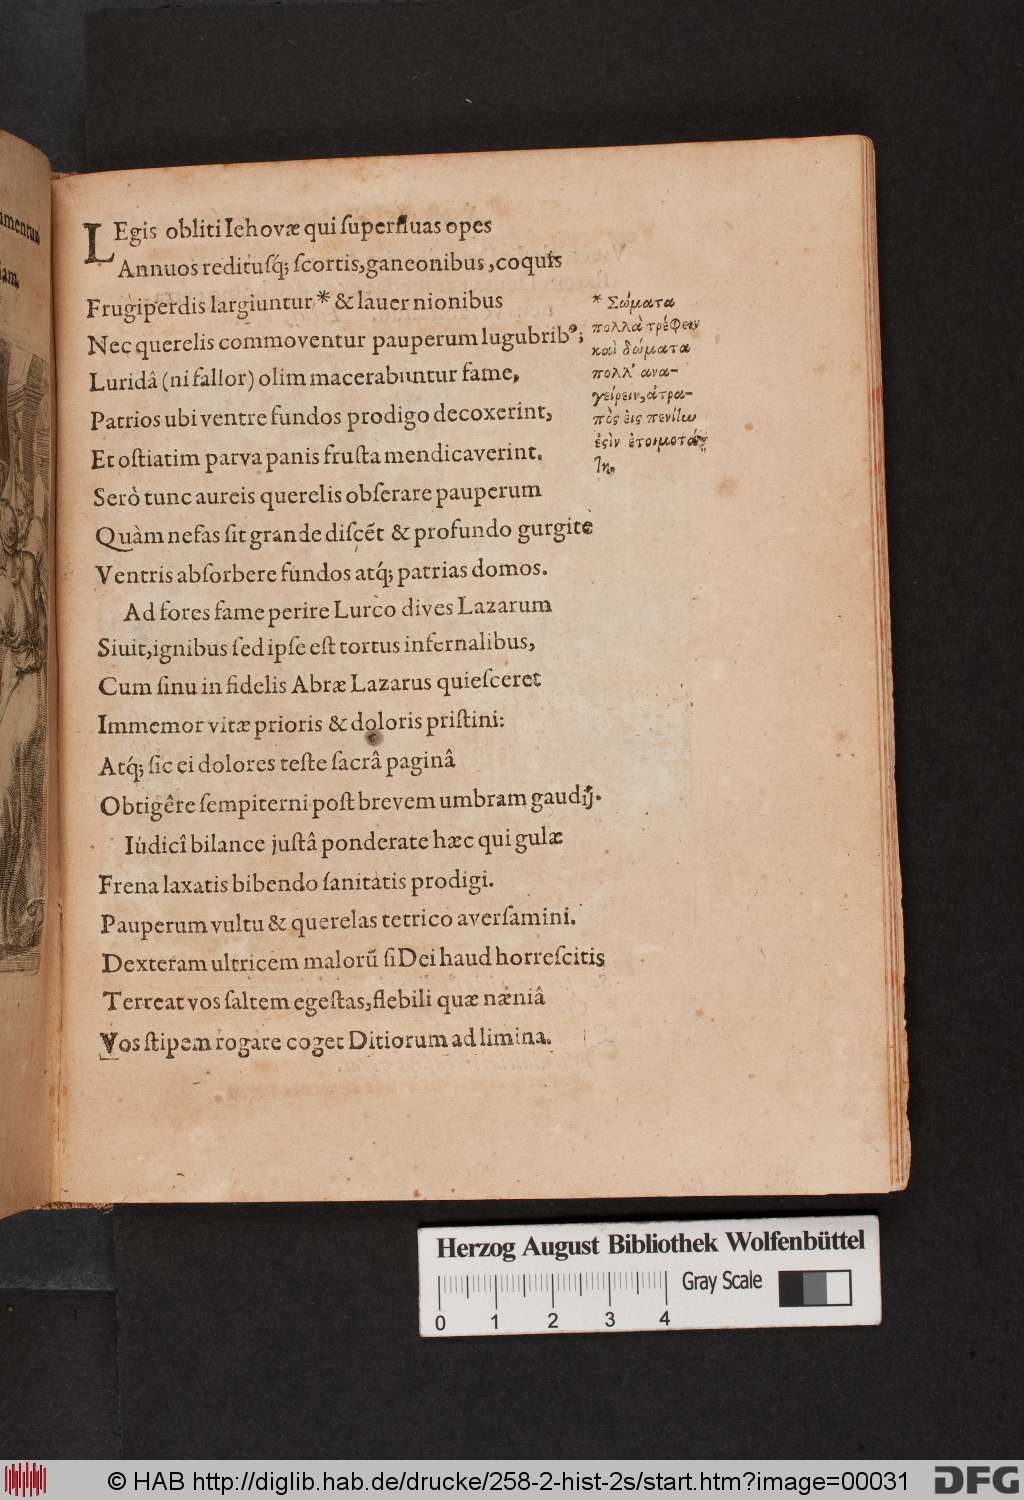 LEgis obliti Iehovæ qui ſuperfluas opes
Annuos redituſq́; ſcortis, ganeonibus, coquis
Frugiperdis largiuntur * & lavernionibus
Nec querelis commoventur pauperum lugubribꝰ;
Luridâ (ni fallor) olim macerabuntur fame,
Patrios ubi ventre fundos prodigo decoxerint,
Et oſtiatim parva panis fruſta mendicaverint.
Serò tunc aureis querelis obſerare pauperum
Quàm nefas ſit grande diſcẽt & profundo gurgite
Ventris abſorbere fundos atq́; patrias domos.
Ad fores fame perire Lurco dives Lazarum
Siuit, ignibus ſed ipſe eſt tortus infernalibus,
Cum ſinu in fidelis Abræ Lazarus quieſceret
Immemor vitæ prioris & doloris priſtini:
Atq́; ſic ei dolores teſte ſacrâ paginâ
Obtigêre ſempiterni poſt brevem umbram gaudij.
Iudicî bilance juſtâ ponderate hæc qui gulæ
Frena laxatis bibendo ſanitatis prodigi.
Pauperum vultu & querelas tetrico averſamini.
Dexteram ultricem malorũ ſi Dei haud horreſcitis
Terreat vos ſaltem egeſtas, flebili quæ næniâ
Vos ſtipem rogare coget Ditiorum ad limina.
* Σώματα
πολλὰ τρέφειν
καὶ δώματα
πολλ' ανα-
γείρειν, ἀτρα-
πὸς εἰς πενίην
ἐςὶν ἑτοιμοτά-
τη.
umentum
iam,
Herzog August Bibliothek Wolfenbüttel
Gray Scale
0 1 2 3 4
© HAB http://diglib.hab.de/drucke/258-2-hist-2s/start.htm?image=00031
DFG